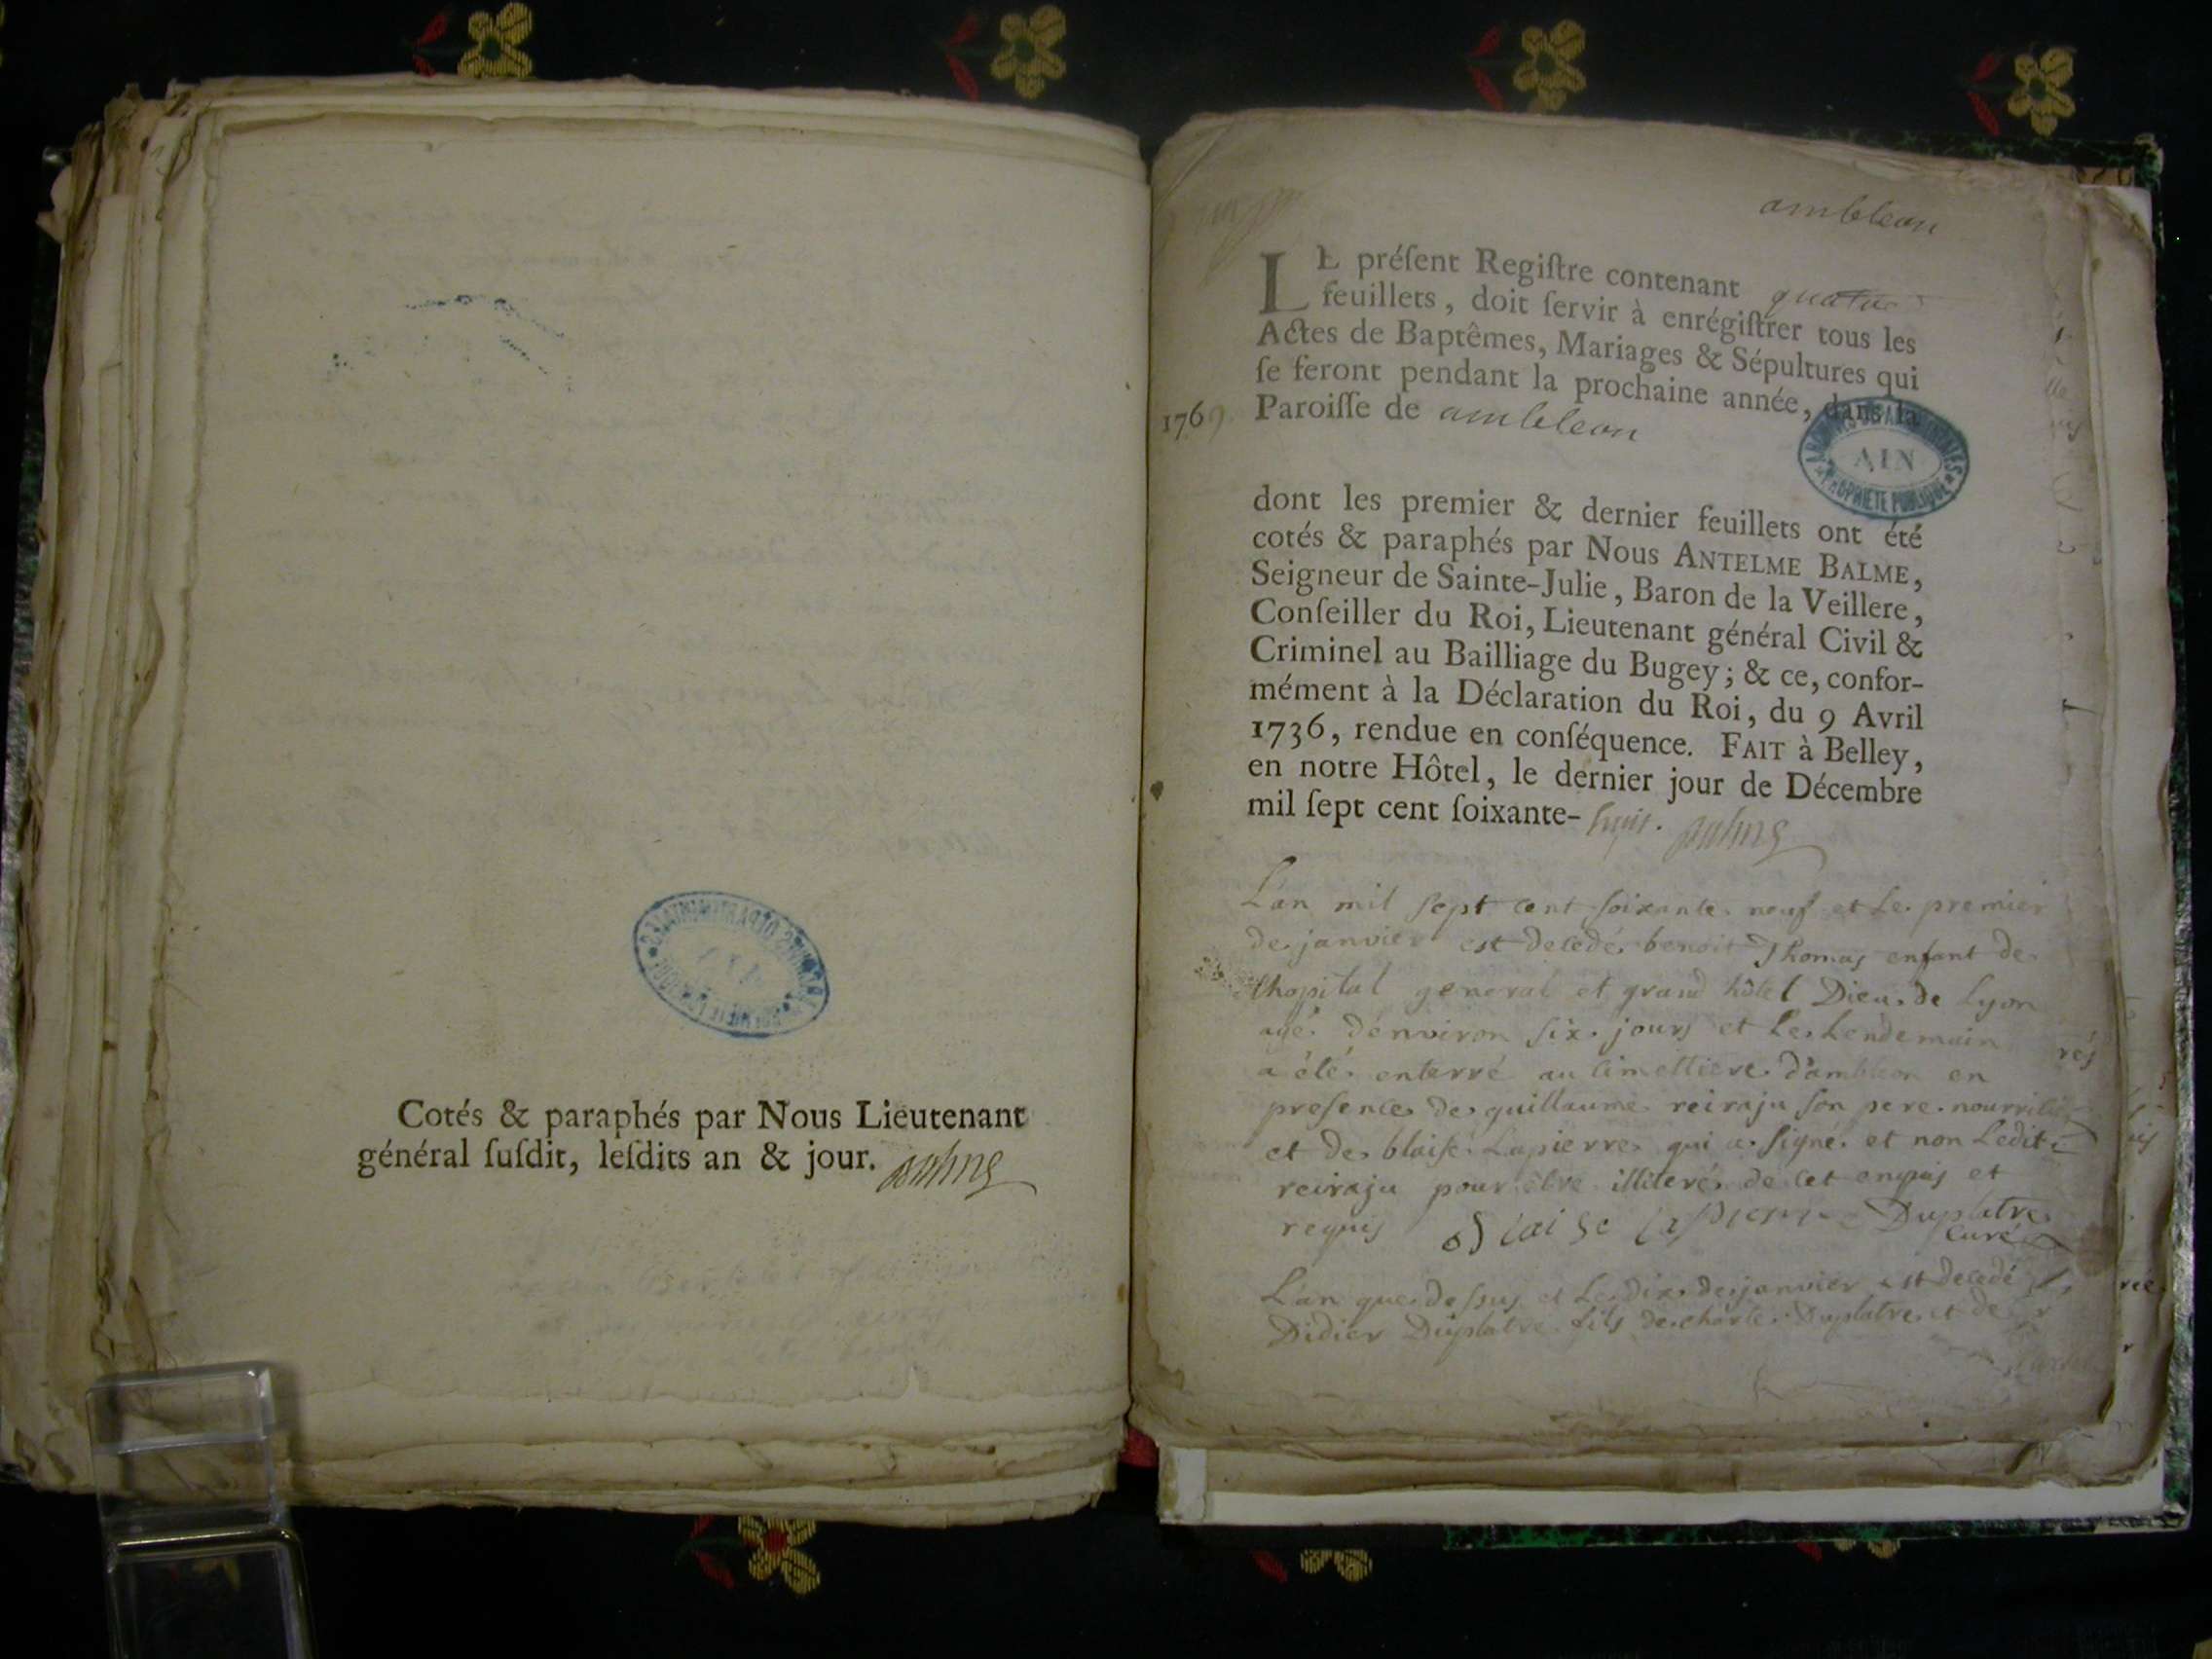 Cotés & paraphés par Nous Lieutenant
général ſuſdit, leſdits an & jour.
ambleon
LE préſent Regiſtre contenant quatre
feuillets, doit ſervir à enrégiſtrer tous les
Actes de Baptêmes, Mariages & Sépultures qui
ſe feront pendant la prochaine année, dans la
1769 Paroiſſe de ambleon
ARCHIVES DEPARTEMENTALES
AIN
PROPRIETE PUBLIQUE
dont les premier & dernier feuillets ont été
cotés & paraphés par Nous ANTELME BALME,
Seigneur de Sainte-Julie, Baron de la Veillere,
Conſeiller du Roi, Lieutenant général Civil &
Criminel au Bailliage du Bugey; & ce, confor-
mément à la Déclaration du Roi, du 9 Avril
1736, rendue en conſéquence. FAIT à Belley,
en notre Hôtel, le dernier jour de Décembre
mil ſept cent ſoixante-huit. Balme
L'an mil sept cent soixante neuf et le premier
de janvier est decedé benoit Thomas enfant de
lhopital general et grand hôtel Dieu de Lyon
agé denviron six jours et le lendemain
a été enterré au cimettiere d'ambleon en
presence de guillaume reiraju son pere nourricier
et de blaise Lapierre qui a signé et non ledit
reiraju pour être illiteré de cet enquis et
requis blaise lapierre Duplatre
curé
L'an que dessus et le dix de janvier est decedé
Didier Duplatre fils de charle Duplatre et de